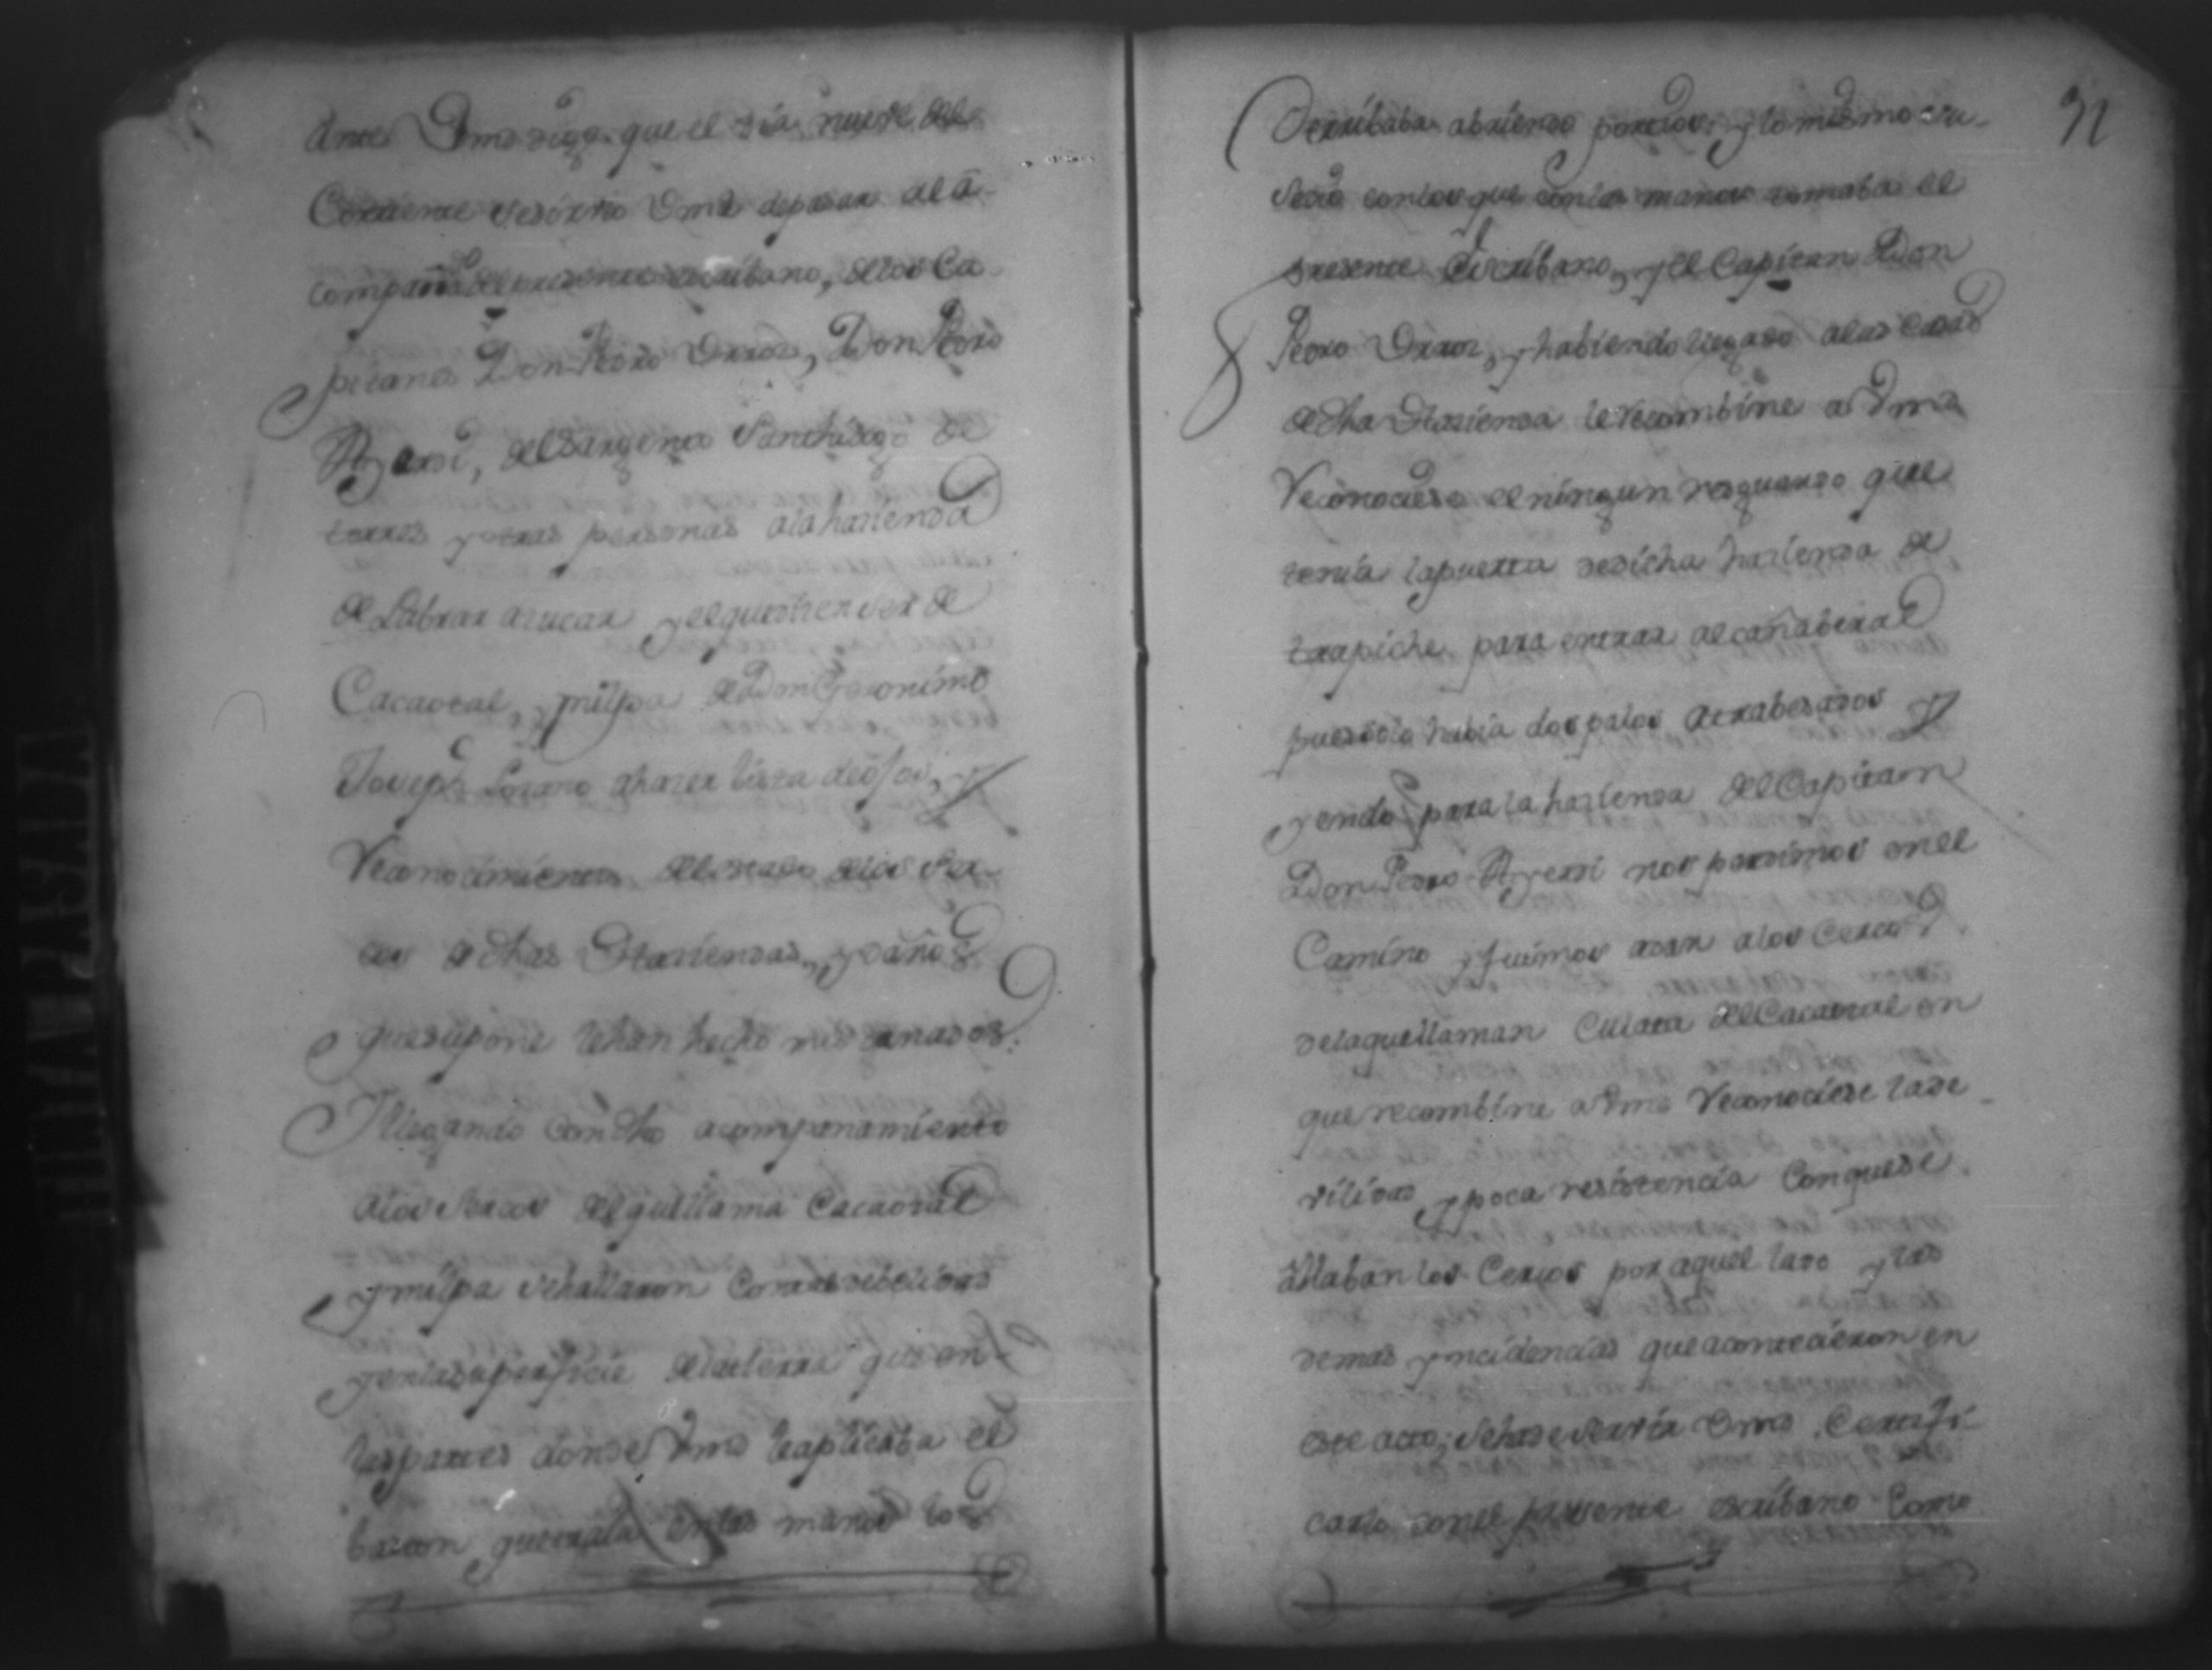 Ante Vmd digo que el dia nueve del
Corriente se sirvio Vmd de pasar en
compañia del presente escribano, de los Ca
pitanes Don Pedro Don Pedro
Ayerdi, del Sargento Santhiago de
torres y otras personas a la hazienda
de Labrar azucar y el que dizen ser de
Cacaotal, y milpa de Don Geronimo
Joseph Lozano a hazer bista de ojos, y
Reconocimiento del estado de los Ser
cos de dhas Haziendas, y daños
que supone le han hecho mis ganados:
Y llegando con dho acompanamiento
a los sercos del que llama Cacaotal
y milpa se hallaron
y en la superficie de la tierra que en
las partes donde Vmd le aplicaba el
baston, que traia en las manos los
Derribaba abriendo portios, y lo mismo su
sedio con los que con las manos tomaba el
presente Escribano, y el Capitan Don
Pedro y habiendo llegado a las casas
de dha Hazienda le recombine a Vmd
Reconociese el ningun resguardo que
tenia la puerta de dicha hazienda de
trapiche para entrar al cañaberal
pues solo habia dos palos atrabesados y
yendo para la hazienda del Capitan
Don Pedro Ayerdi nos partimos en el
Camino y fuimos a dar a los Cercos
de la que llaman Culata del Cacaotal en
que recombine a Vmd Reconociese la de
vilidad y poca resistencia con que se
allaban los Cercos por aquel lado y las
demas yncidencias que acontecieron en
este acto; se ha de servir Vmd Certifi
carlo con el presente escribano como
31